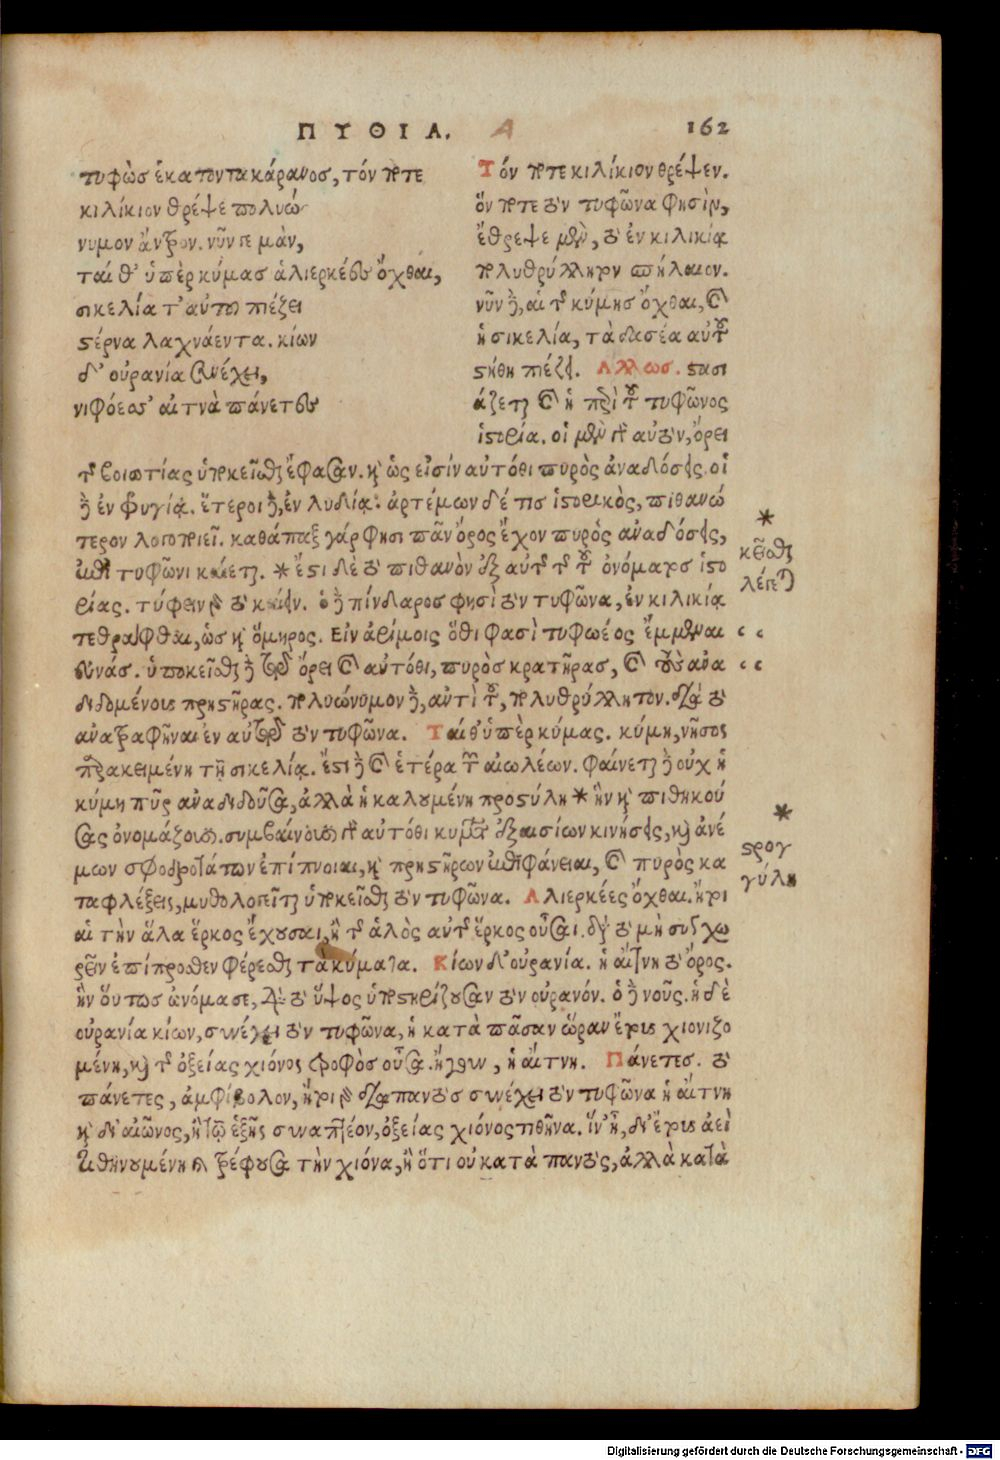 ΠΥΘΙΑ. Α 162
τυφὼς ἑκατοντακάρανος, τόν ποτε
κιλίκιον θρέψε πολυώ
νυμον ἄντρον. νῦν γε μὰν,
ταί θ' ὑπὲρ κύμας ἁλιερκέες ὄχθαι,
σικελία τ' αὐτοῦ πιέζει
στέρνα λαχνάεντα. κίων
δ' οὐρανία συνέχει,
νιφόεσσ' αἴτνα πάνετες
Τόν ποτε κιλίκιον θρέψεν.
ὅν ποτε τὸν τυφῶνα φησὶν,
ἔθρεψε μὲν, τὸ ἐν κιλικίᾳ
πολυθρύλλητον σπήλαιον.
νῦν δὲ, αἱ τῆς κύμης ὄχθαι, καὶ
ἡ σικελία, τὰ δασέα αὐτοῦ
στήθη πιέζει. Ἄλλως. στασι
άζεται καὶ ἡ περὶ τοῦ τυφῶνος
ἱστορία. οἱ μὲν γὰρ αὐτὸν, ὄρει
τῆς βοιωτίας ὑποκεῖσθαι ἔφασαν. καὶ ὡς εἰσὶν αὐτόθι πυρὸς ἀναδόσεις. οἱ
δὲ ἐν φρυγίᾳ. ἕτεροι δὲ, ἐν λυδίᾳ. ἀρτέμων δέ τις ἱστορικὸς, πιθανώ
τερον λογοποιεῖ. καθάπαξ γάρ φησι πᾶν ὄρος ἔχον πυρὸς ἀναδόσεις,
ἐπὶ τυφῶνι καίεται. * ἔστι δὲ τὸ πιθανὸν ἐξ αὐτῆς τῆς τοῦ ὀνόματος ἱστο
ρίας. τύφειν γὰρ τὸ καίειν. ὁ δὲ πίνδαρος φησὶ τὸν τυφῶνα, ἐν κιλικίᾳ
τεθράφθαι, ὡς καὶ ὅμηρος. Εἰν ἀρίμοις ὅθι φασὶ τυφωέος ἔμμεναι
εὐνάς. ὑποκεῖσθαι δὲ τῷ ὄρει καὶ αὐτόθι, πυρὸς κρατῆρας, καὶ τοὺς ἀνα
διδομένους πρηστῆρας. πολυώνυμον δὲ, ἀντὶ τοῦ, πολυθρύλλητον. διὰ τὸ
ἀνατραφῆναι ἐν αὐτῷ τὸν τυφῶνα. Ταί θ' ὑπὲρ κύμας. κύμη, νῆσος
παρακειμένη τῇ σικελίᾳ. ἔστι δὲ καὶ ἑτέρα τῶν αἰολέων. φαίνεται δὲ οὐχ ἡ
κύμη πῦρ ἀναδιδοῦσα, ἀλλὰ ἡ καλουμένη προστύλη * ἣν καὶ πιθηκού
σας ὀνομάζουσι. συμβαίνουσι γὰρ αὐτόθι κυμάτων ἐξαισίων κινήσεις, καὶ ἀνέ
μων σφοδροτάτων ἐπίπνοιαι, καὶ πρηστήρων ἐπιφάνειαι, καὶ πυρὸς κα
ταφλέξεις, μυθολογεῖται ὑποκεῖσθαι τὸν τυφῶνα. Ἁλιερκέες ὄχθαι. ἤτοι
αἱ τὴν ἅλα ἕρκος ἔχουσαι, ἢ τῆς ἁλὸς αὐτῆς ἕρκος οὖσαι. διὰ τὸ μὴ συγχω
ρεῖν ἐπίπροσθεν φέρεσθαι τὰ κύματα. Κίων δ' οὐρανία. ἡ αἴτνη τὸ ὄρος.
ἣν οὕτως ὠνόμασε, διὰ τὸ ὕψος ὑποστηρίζουσαν τὸν οὐρανόν. ὁ δὲ νοῦς. ἡ δὲ
οὐρανία κίων, συνέχει τὸν τυφῶνα, ἡ κατὰ πᾶσαν ὥραν ἔτους χιονιζο
μένη, καὶ τῆς ὀξείας χιόνος τροφὸς οὖσα. ἤγουν, ἡ αἴτνη. Πάνετες. τὸ
πάνετες, ἀμφίβολον, ἤτοι γὰρ διαπαντὸς συνέχει τὸν τυφῶνα ἡ αἴτνη
καὶ δι' αἰῶνος, ἢ τῷ ἑξῆς συναπτέον, ὀξείας χιόνος τιθῆνα. ἵν' ᾖ, δι' ἔτους ἀεὶ
τιθηνουμένη καὶ τρέφουσα τὴν χιόνα, ἢ ὅτι οὐ κατὰ παντὸς, ἀλλὰ κατὰ
*
κεῖσθαι
λέγεται
*
στρογ
γύλη
Digitalisierung gefördert durch die Deutsche Forschungsgemeinschaft - DFG